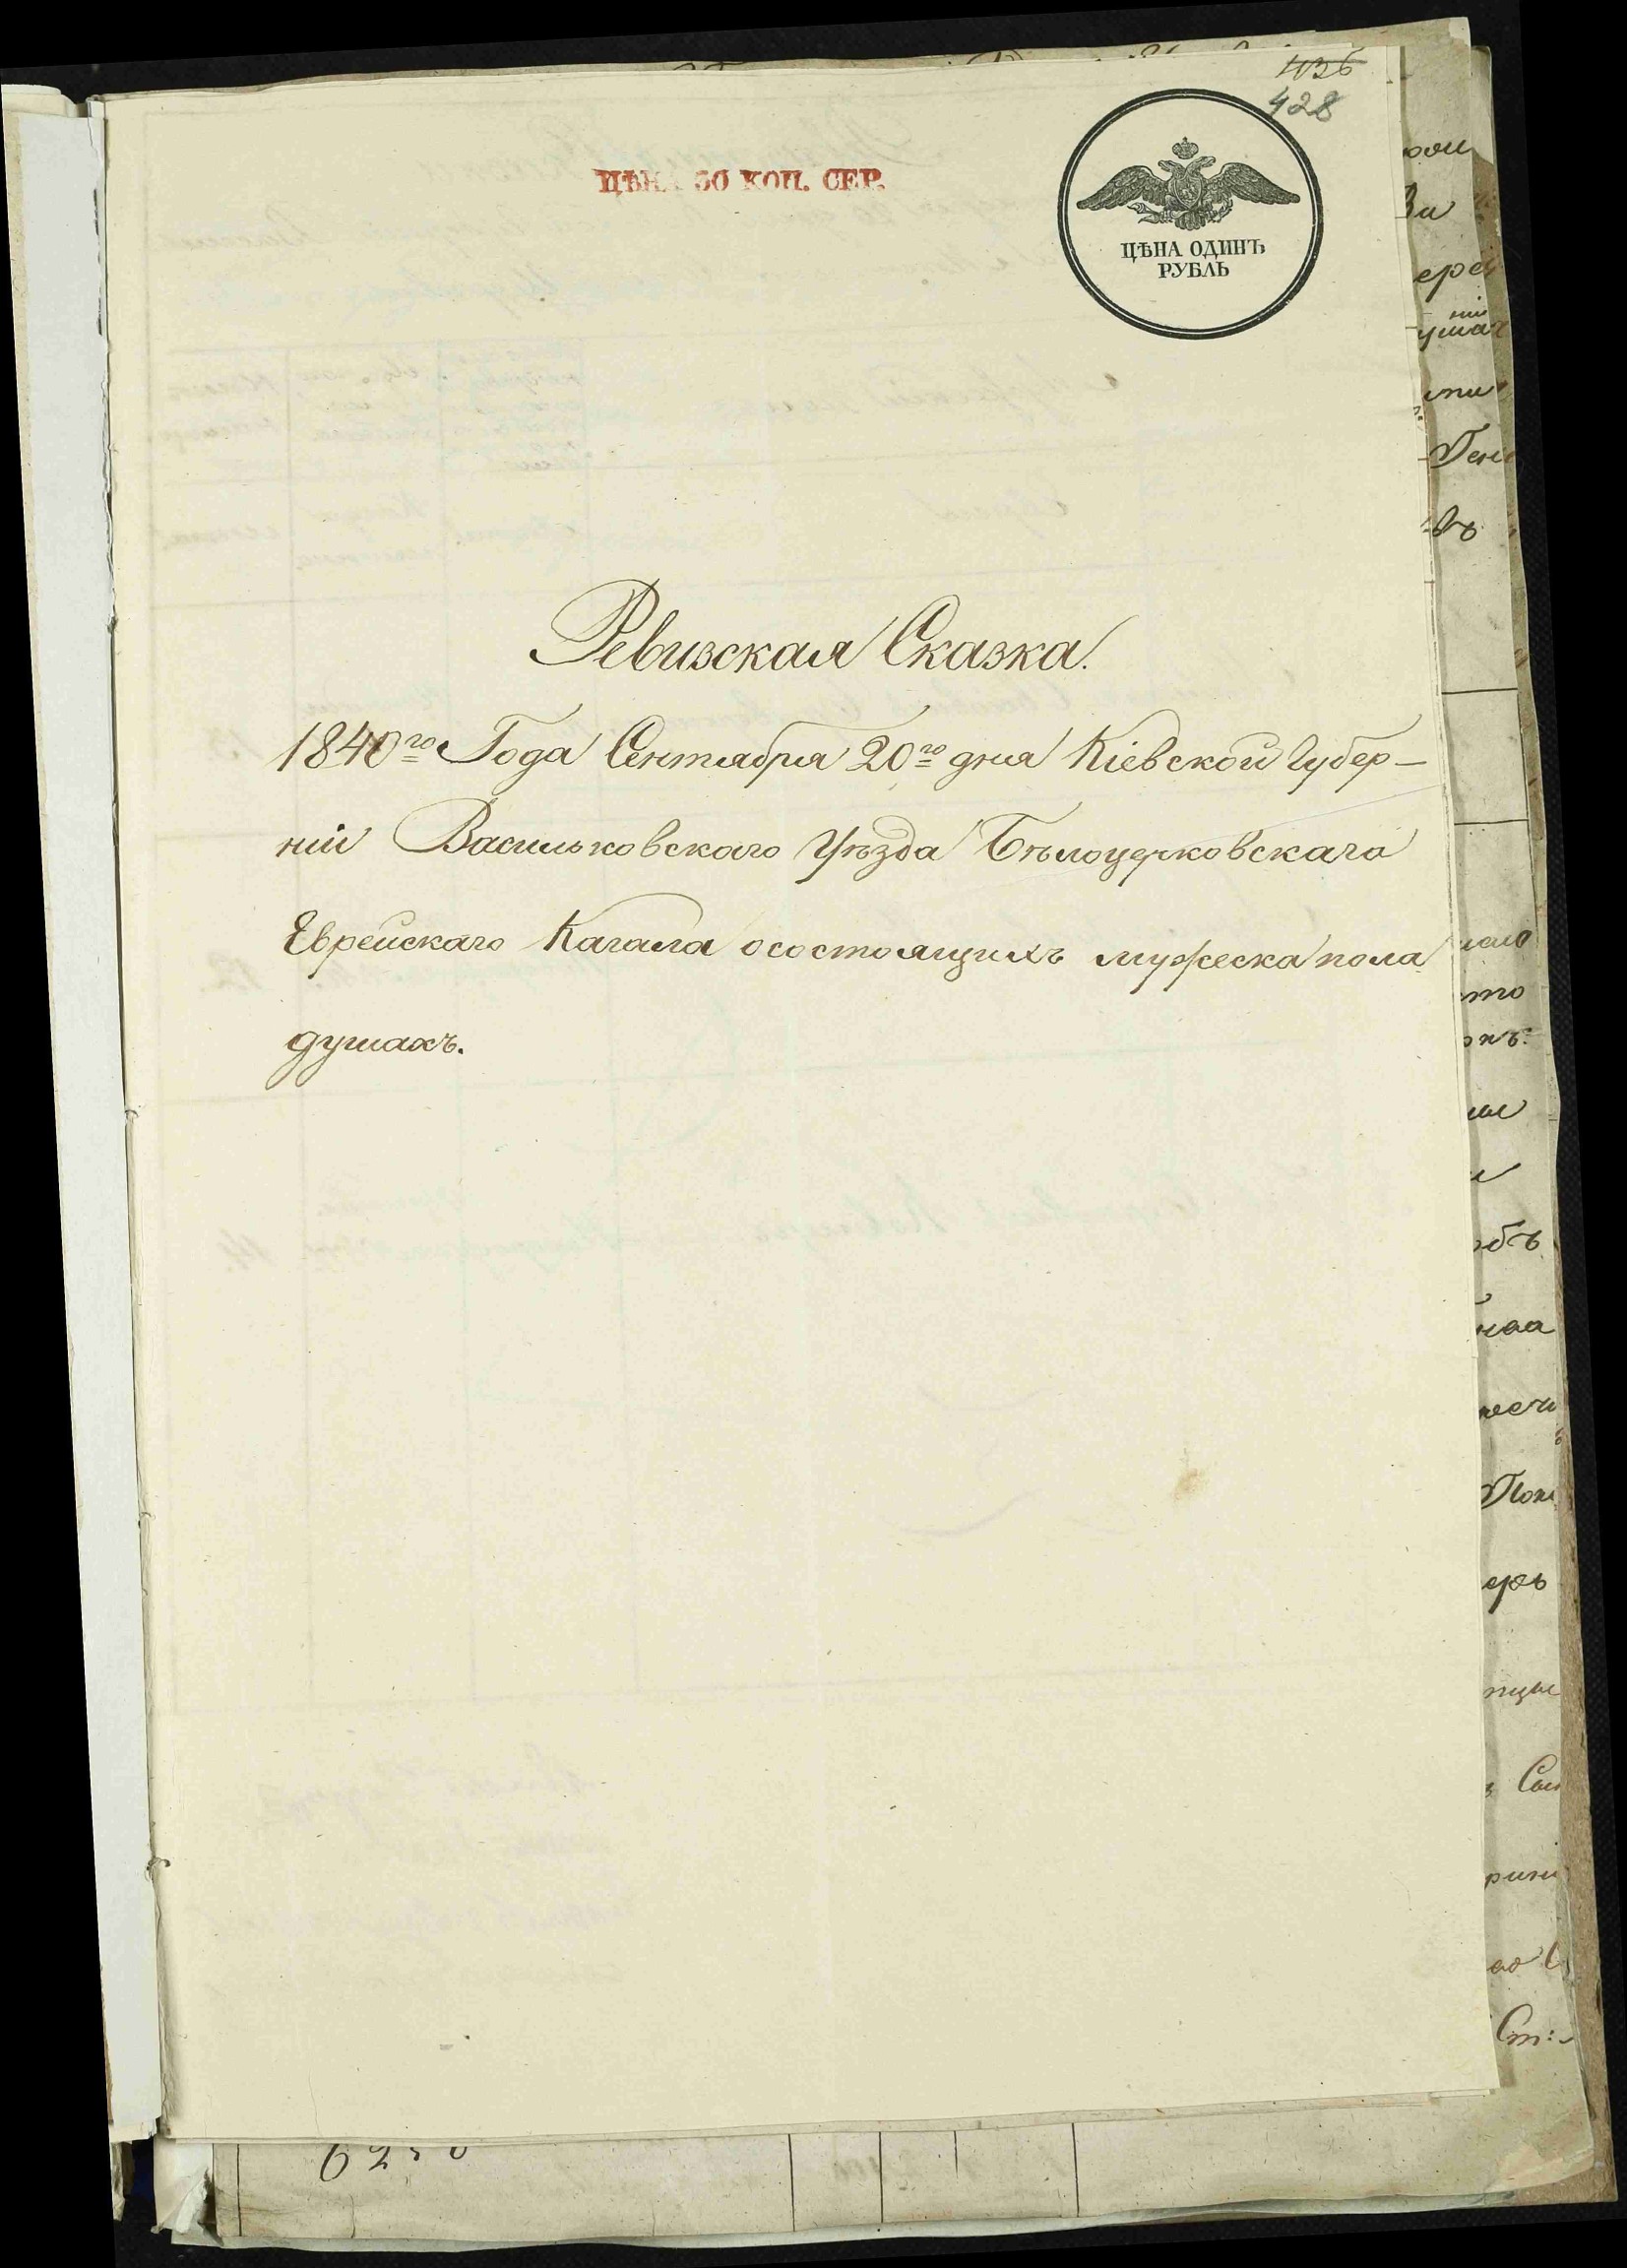 428
ЦѢНА 30 КОП. СЕР.
ЦѢНА ОДИНЪ
РУБЛЬ
Ревизская Сказка.
1840го Года Сентября 20го дня Кіевской Губер–
ніи Васильковскаго Уѣзда Бѣлоцерковскаго
Еврейскаго Кагала о состоящихъ мужеска пола
душахъ.